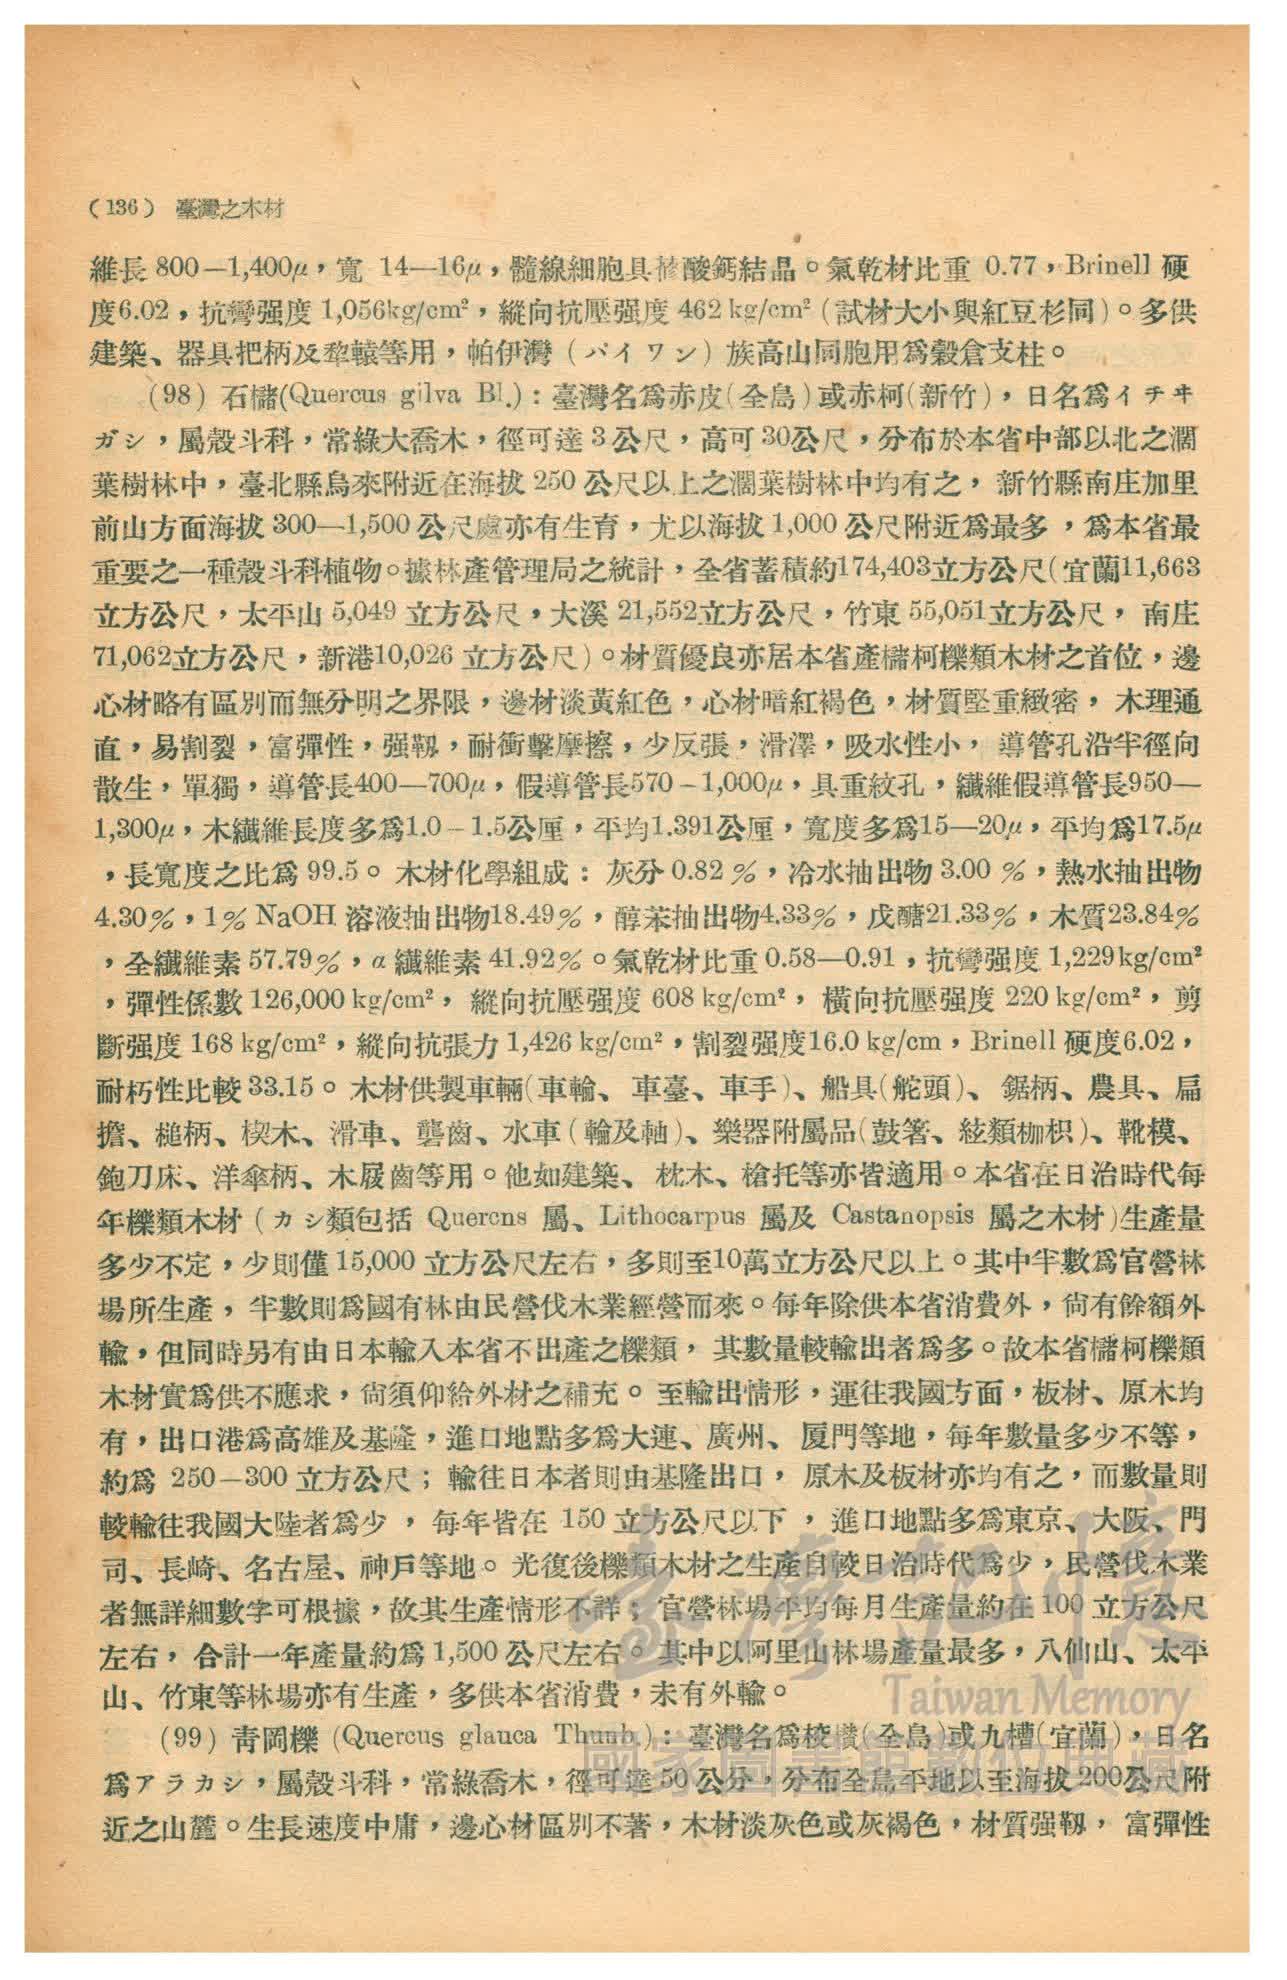 (136) 臺灣之木材
維長 800—1,400μ，寬 14—16μ，髓線細胞具蓚酸鈣結晶。氣乾材比重 0.77，Brinell 硬
度6.02，抗彎强度 1,056kg/cm²，縱向抗壓强度 462 kg/cm² (試材大小與紅豆杉同)。多供
建築、器具把柄及犂轅等用，帕伊灣 (パイワン) 族高山同胞用爲穀倉支柱。
(98) 石櫧(Quercus gilva Bl.)：臺灣名爲赤皮(全島)或赤柯(新竹)，日名爲イチヰ
ガシ，屬殼斗科，常綠大喬木，徑可達 3 公尺，高可 30公尺，分布於本省中部以北之濶
葉樹林中，臺北縣烏來附近在海拔 250 公尺以上之濶葉樹林中均有之，新竹縣南庄加里
前山方面海拔 300—1,500 公尺處亦有生育，尤以海拔 1,000 公尺附近爲最多，爲本省最
重要之一種殼斗科植物。據林產管理局之統計，全省蓄積約174,403立方公尺(宜蘭11,663
立方公尺，太平山 5,049 立方公尺，大溪 21,552立方公尺，竹東 55,051立方公尺，南庄
71,062立方公尺，新港10,026 立方公尺)。材質優良亦居本省產櫧柯櫟類木材之首位，邊
心材略有區別而無分明之界限，邊材淡黃紅色，心材暗紅褐色，材質堅重緻密，木理通
直，易割裂，富彈性，强靱，耐衝擊摩擦，少反張，滑澤，吸水性小，導管孔沿半徑向
散生，單獨，導管長400—700μ，假導管長570－1,000μ，具重紋孔，纖維假導管長950—
1,300μ，木纖維長度多爲1.0－1.5公厘，平均1.391公厘，寬度多爲15—20μ，平均爲17.5μ
，長寬度之比爲 99.5。木材化學組成：灰分 0.82 %，冷水抽出物 3.00 %，熱水抽出物
4.30%，1% NaOH 溶液抽出物18.49%，醇苯抽出物4.33%，戊醣21.33%，木質23.84%
，全纖維素 57.79%，α 纖維素 41.92%。氣乾材比重 0.58—0.91，抗彎强度 1,229kg/cm²
，彈性係數 126,000 kg/cm²，縱向抗壓强度 608 kg/cm²，橫向抗壓强度 220 kg/cm²，剪
斷强度 168 kg/cm²，縱向抗張力 1,426 kg/cm²，割裂强度16.0 kg/cm，Brinell 硬度6.02，
耐朽性比較 33.15。木材供製車輛(車輪、車臺、車手)、船具(舵頭)、鋸柄、農具、扁
擔、槌柄、楔木、滑車、礱齒、水車(輪及軸)、樂器附屬品(鼓箸、絃類枷枳)、靴模、
鉋刀床、洋傘柄、木屐齒等用。他如建築、枕木、槍托等亦皆適用。本省在日治時代每
年櫟類木材 (カシ類包括 Quercns 屬、Lithocarpus 屬及 Castanopsis 屬之木材)生產量
多少不定，少則僅 15,000 立方公尺左右，多則至10萬立方公尺以上。其中半數爲官營林
場所生產，半數則爲國有林由民營伐木業經營而來。每年除供本省消費外，尙有餘額外
輸，但同時另有由日本輸入本省不出產之櫟類，其數量較輸出者爲多。故本省櫧柯櫟類
木材實爲供不應求，尙須仰給外材之補充。至輸出情形，運往我國方面，板材、原木均
有，出口港爲高雄及基隆，進口地點多爲大連、廣州、厦門等地，每年數量多少不等，
約爲 250－300 立方公尺；輸往日本者則由基隆出口，原木及板材亦均有之，而數量則
較輸往我國大陸者爲少，每年皆在 150 立方公尺以下，進口地點多爲東京、大阪、門
司、長崎、名古屋、神戶等地。光復後櫟類木材之生產自較日治時代爲少，民營伐木業
者無詳細數字可根據，故其生產情形不詳；官營林場平均每月生產量約在 100 立方公尺
左右，合計一年產量約爲 1,500 公尺左右。其中以阿里山林場產量最多，八仙山、太平
山、竹東等林場亦有生產，多供本省消費，未有外輸。
(99) 靑岡櫟 (Quercus glauca Thunb.)：臺灣名爲校欑(全島)或九槽(宜蘭)，日名
爲アラカシ，屬殼斗科，常綠喬木，徑可達 50 公分，分布全島平地以至海拔 200公尺附
近之山麓。生長速度中庸，邊心材區別不著，木材淡灰色或灰褐色，材質强靱，富彈性
臺灣記憶
Taiwan Memory
國家圖書館數位典藏